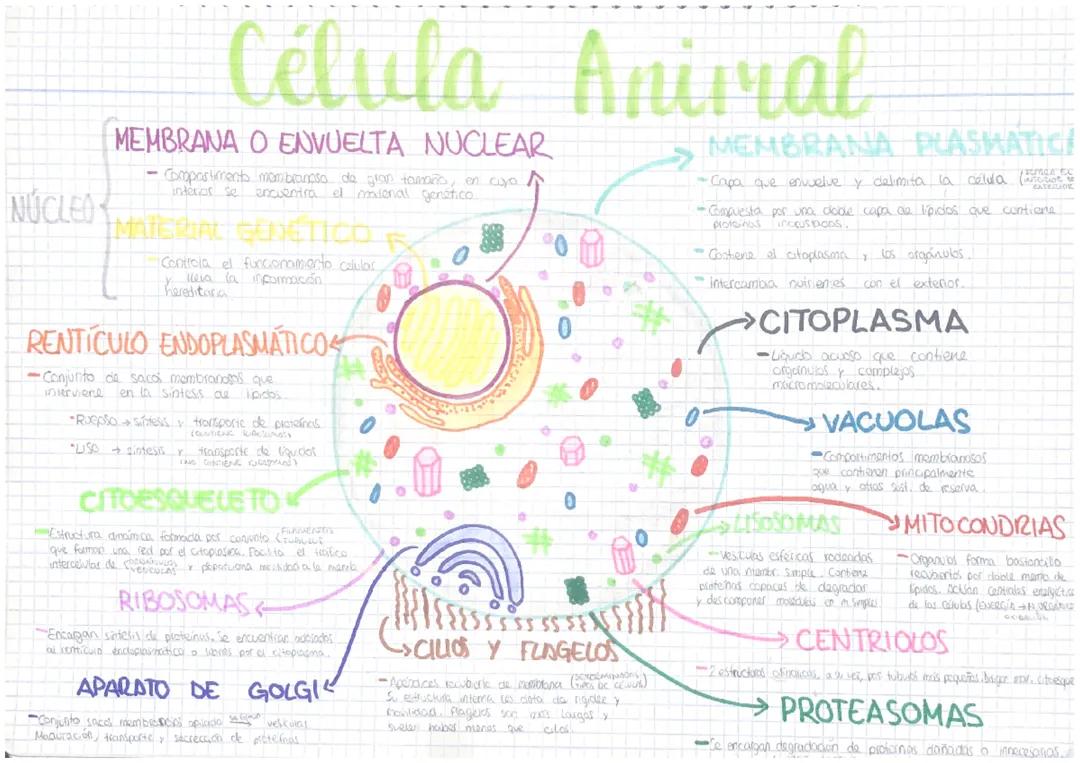 Célula Animal
NÚCLEO
MEMBRANA O ENVUELTA NUCLEAR
- Compartimento membranoso de gran tamaño, en cuyo
interior se encuentra el material genético.
MATERIAL GENÉTICO
- Controla el funcionamiento celular
lleva la información
hereditaria
RENTÍCULO ENDOPLASMÁTICO
- Conjunto de sacos membranosos que
interviene en la síntesis de lípidos.
*Rugoso → síntesis y transporte de proteínas
(contiene ribosomas)
*Liso → síntesis y transporte de líquidos
(no contiene ribosomas)
CITOESQUELETO
- Estructura dinámica formada por conjunto
que forman una red por el citoplasma. Facilita el tráfico
intercelular de y movilidad a la
RIBOSOMAS
- Encargan síntesis de proteínas. Se encuentran asociados
al rentículo endoplasmático o libres por el citoplasma.
APARATO DE GOLGI
- Conjunto sacos membranosos vesículas
Maduración, transporte y secrección de proteínas
MEMBRANA PLASMÁTICA
- Capa que envuelve y delimita la célula
- Compuesta por una doble capa de lípidos que contiene
proteínas incrustadas.
- Contiene el citoplasma y los orgánulos.
- Intercambia nutrientes con el exterior.
CITOPLASMA
- Líquido acuoso que contiene
orgánulos y complejos
macromoleculares.
VACUOLAS
- Compartimentos membranosos
que contienen principalmente
agua y otras sust. de reserva.
LISOSOMAS
- Vesículas esféricas rodeadas
de una membr. simple. Contiene
proteínas capaces de degradar
y descomponer moléculas en + simples
MITOCONDRIAS
- Orgánulos forma bastoncillo
recubiertos por doble memb. de
lípidos. Actúan centrales energética
de las células
CENTRIOLOS
- 2 estructuras cilíndricas, a su vez, por túbulos más pequeños. Dirigen mov. citoesque
CILIOS Y FLAGELOS
- Apéndices recubierto de membrana
Su estructura interna les dota de rigidez y
movilidad. Flagelos son más largos y
suelen haber menos que cilios.
PROTEASOMAS
- Se encargan degradación de proteínas dañadas o innecesarias.